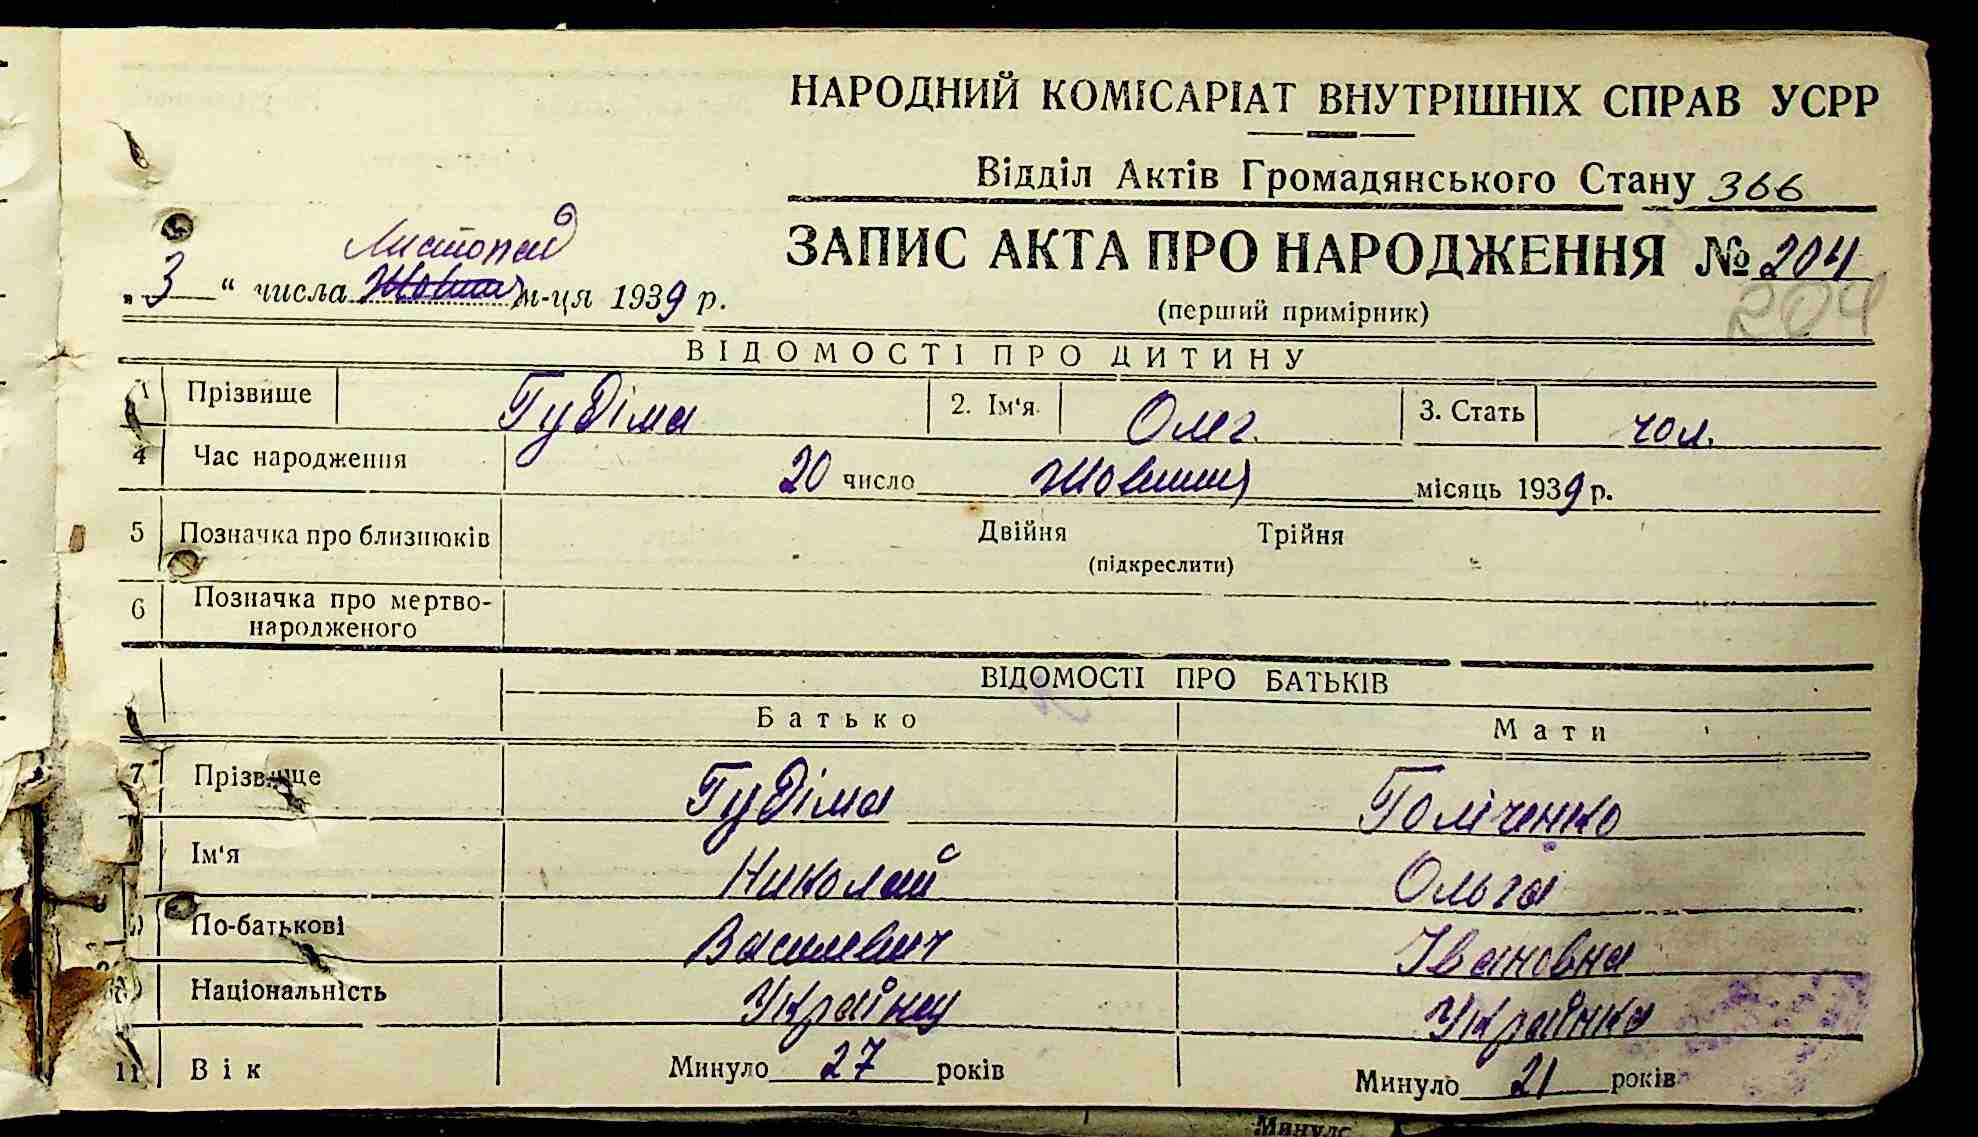 НАРОДНИЙ КОМІСАРІАТ ВНУТРІШНІХ СПРАВ УСРР
Відділ Актів Громадянського Стану 366
ЗАПИС АКТА ПРО НАРОДЖЕННЯ № 204
204
Листопад
„3“ числа Жовтня м-ця 1939 р.
(перший примірник)
ВІДОМОСТІ ПРО ДИТИНУ
1 Прізвище Гудіма 2. Ім'я Олег. 3. Стать чол.
4 Час народження 20 число Жовтня місяць 1939 р.
5 Позначка про близнюків Двійня Трійня
(підкреслити)
6 Позначка про мертво-
народженого
ВІДОМОСТІ ПРО БАТЬКІВ
Батько Мати
7 Прізвище Гудіма Голіченко
Ім'я Николай Ольга
По-батькові Василевич Івановна
Національність Українец Українка
11 Вік Минуло 27 років Минуло 21 років
Минуло